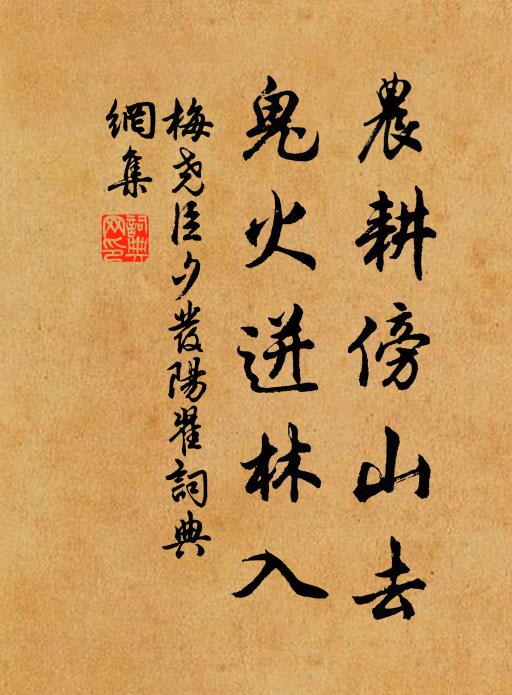 農耕傍山去
鬼火迸林入
梅尧臣夕發陽翟詞典
網集
詞典
网印